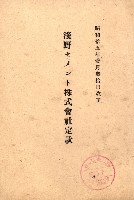 昭和拾五年壹月貳拾日改正
淺野セメント株式會社定款